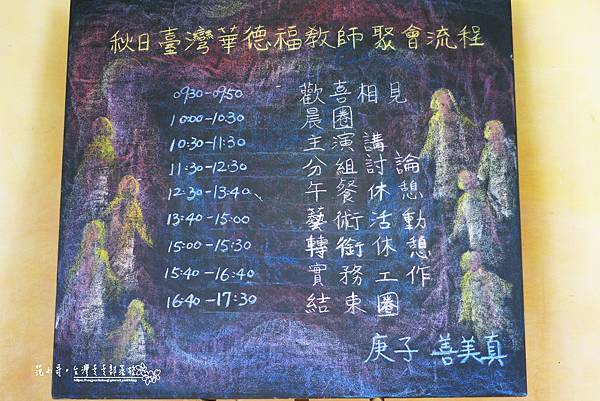 秋日臺灣華德福教師聚會流程
0930-0950 歡喜相見
10:00-10:30 晨圈
10:30-11:30 主演講
11:30-12:30 分組討論
12:30-13:40 午餐休憩
13:40-15:00 藝術活動
15:00-15:30 轉銜休憩
15:40-16:40 實務工作
16:40-17:30 結束圈
庚子 善美真